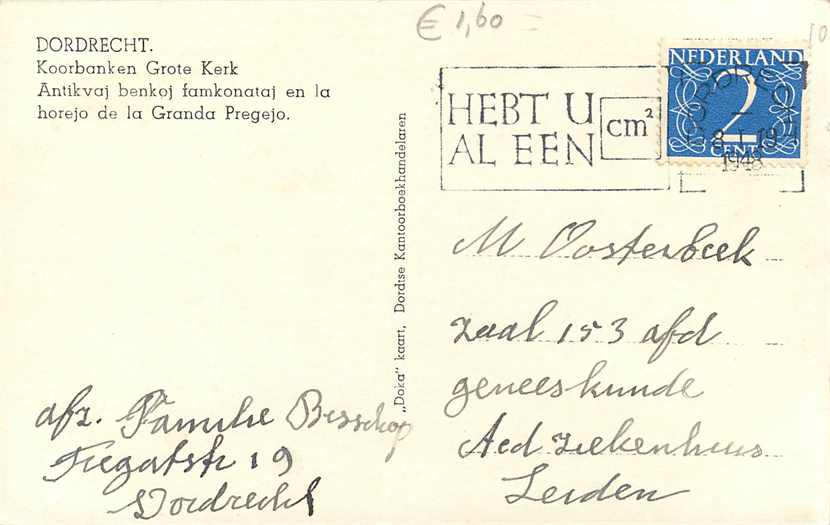 € 1,60 =
10
DORDRECHT.
Koorbanken Grote Kerk
Antikvaj benkoj famkonataj en la
horejo de la Granda Pregejo.
HEBT U
AL EEN cm²
NEDERLAND
2
CENT
DORDRECHT
8 I 19
1948
„Doka" kaart, Dordtse Kantoorboekhandelaren
M Oosterbeek
zaal 153 afd
geneeskunde
Acd Ziekenhuis
Leiden
afz. Familie Besschop
Fregatstr 19
Dordrecht